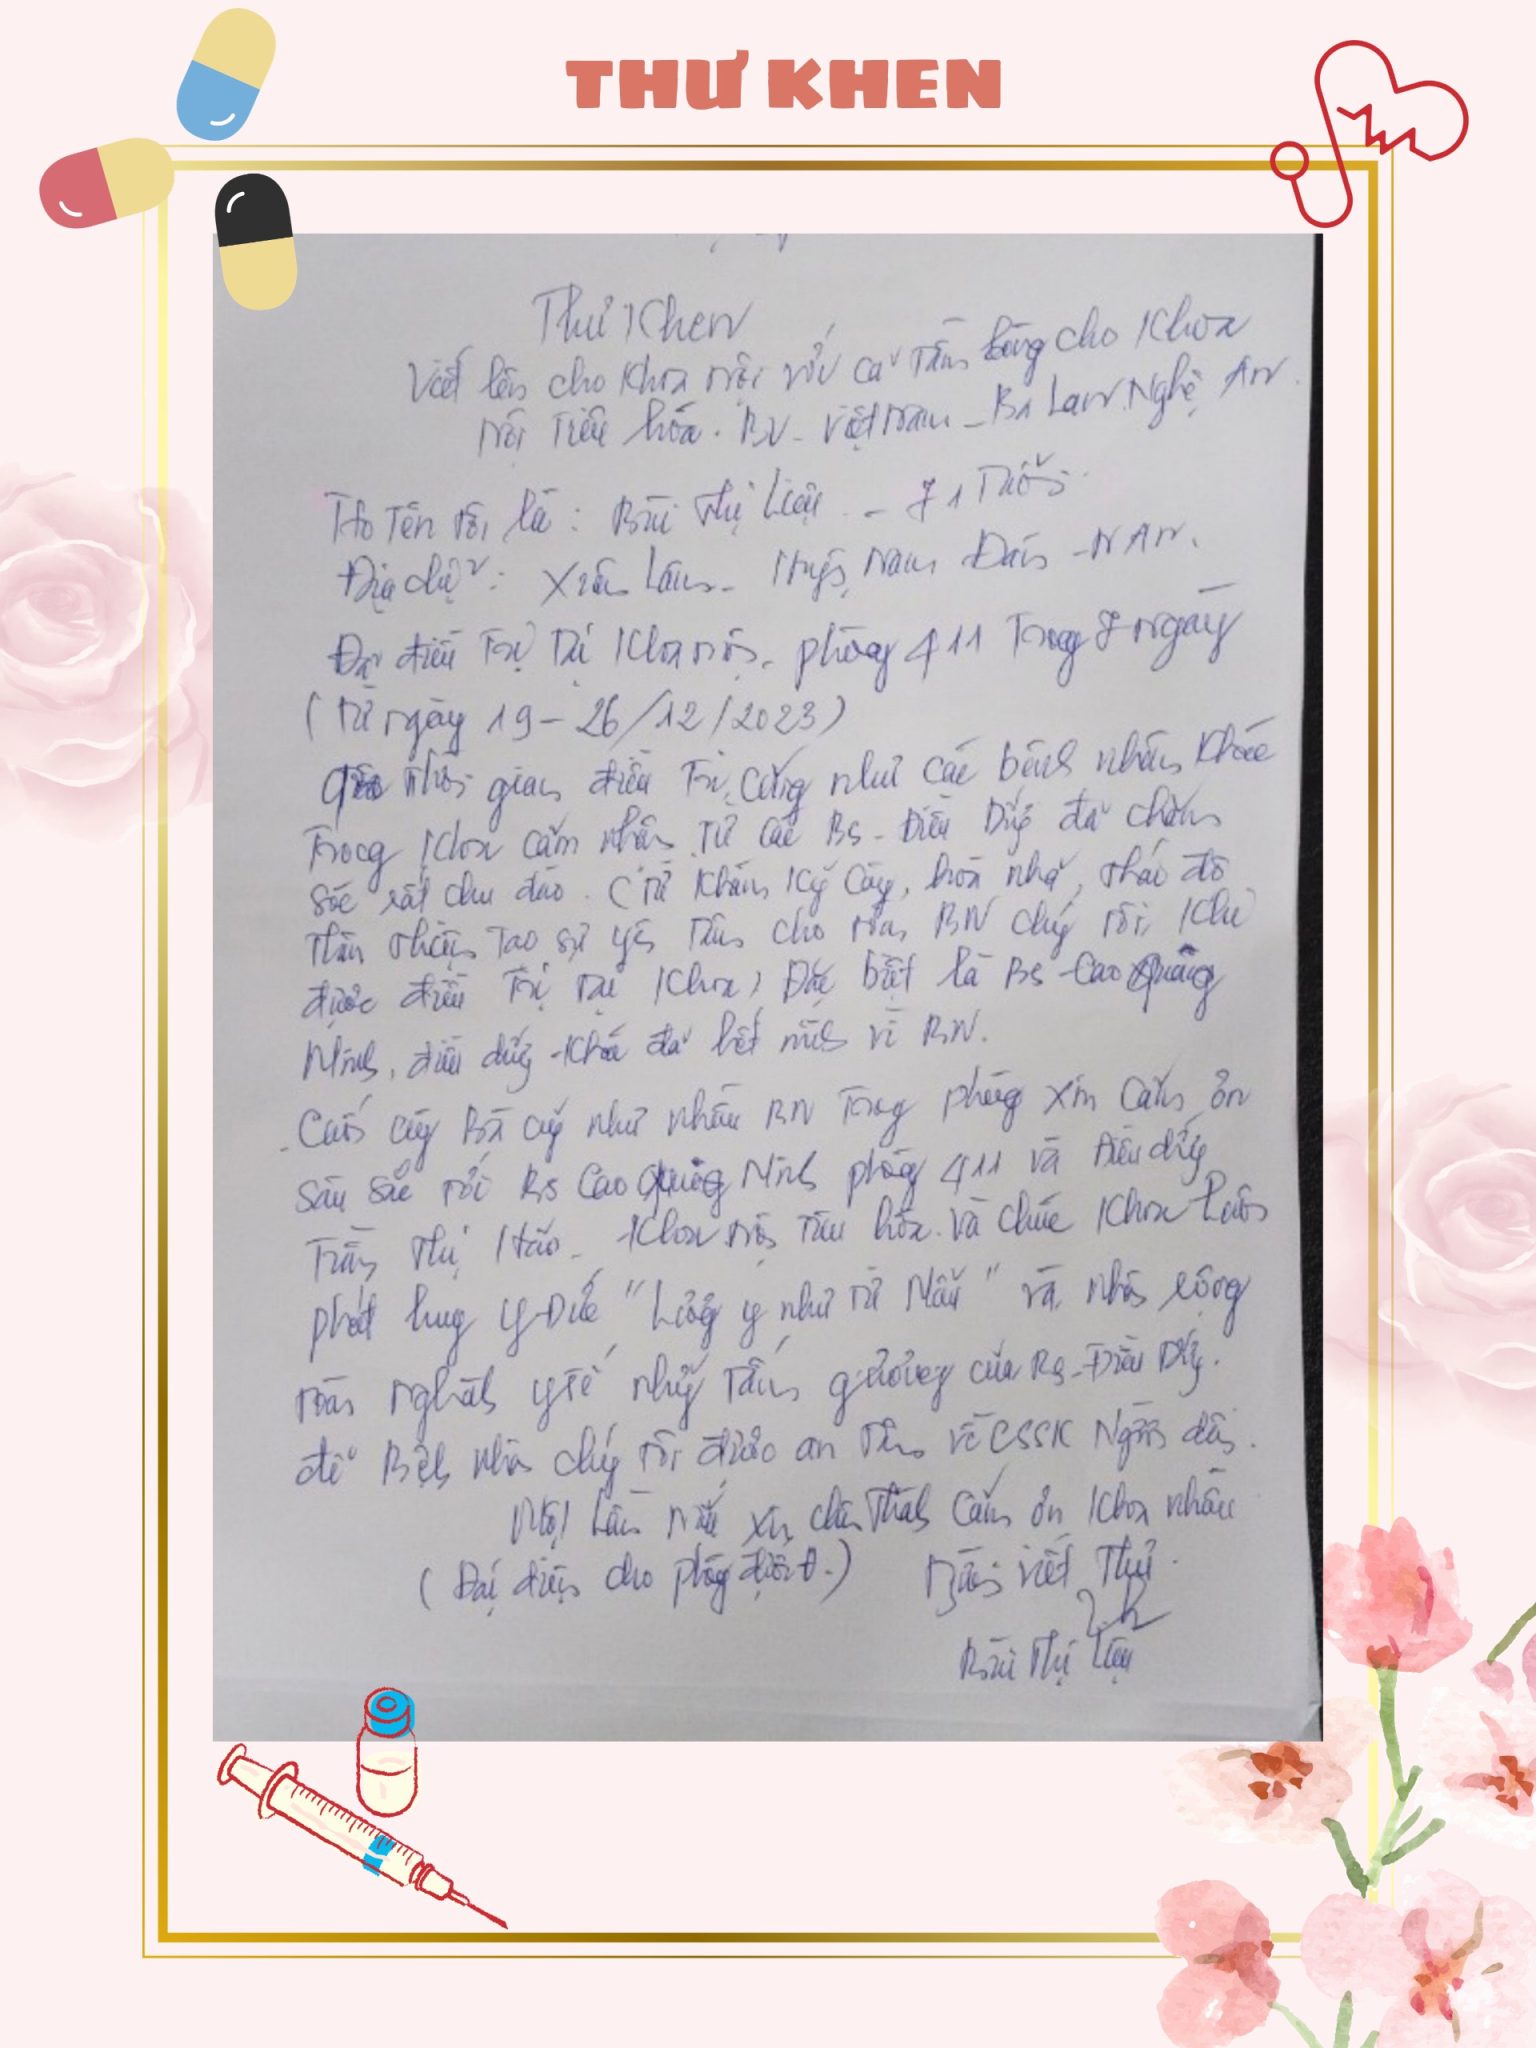 THƯ KHEN
Thư Khen
Viết lên cho Khoa nội với cả tấm lòng cho Khoa
Nội Tiêu hóa. BV - Việt Nam - Ba Lan. Nghệ An.
Họ Tên tôi là: Bùi Thị Liệu - 71 Tuổi
Địa chỉ: Xuân Lâm - Huyện Nam Đàn - N An.
Đã điều trị tại Khoa nội. phòng 411 Trong 7 ngày
(Từ ngày 19 - 26/12/2023)
Thời gian điều trị, cũng như các bệnh nhân khác
Trong Khoa cảm nhận từ các BS - Điều Dưỡng đã chăm
sóc rất chu đáo. (Từ khám kỹ càng, hòa nhã, thái độ
thân thiện tạo sự yên tâm cho BN chúng tôi, khi
được điều trị tại Khoa) Đặc biệt là BS - Cao Quảng
Ninh, điều dưỡng - Khoa đã hết mình vì BN.
Cuối cùng Bà cũng như nhiều BN trong phòng xin cảm ơn
sâu sắc tới BS Cao Quảng Ninh phòng 411 và Điều dưỡng
Trần Thị Hảo - Khoa nội Tiêu hóa. Và chúc Khoa luôn
phát huy Y-Đức "Lương y như từ Mẫu" và nhân rộng
toàn nghành y tế những tấm gương của BS - Điều Dưỡng.
để Bệnh nhân chúng tôi được an tâm về CSSK Người dân.
Một lần nữa xin chân thành cảm ơn Khoa nhiều
(Đại diện cho phòng điều t.) Người viết Thư.
Bùi Thị Liệu